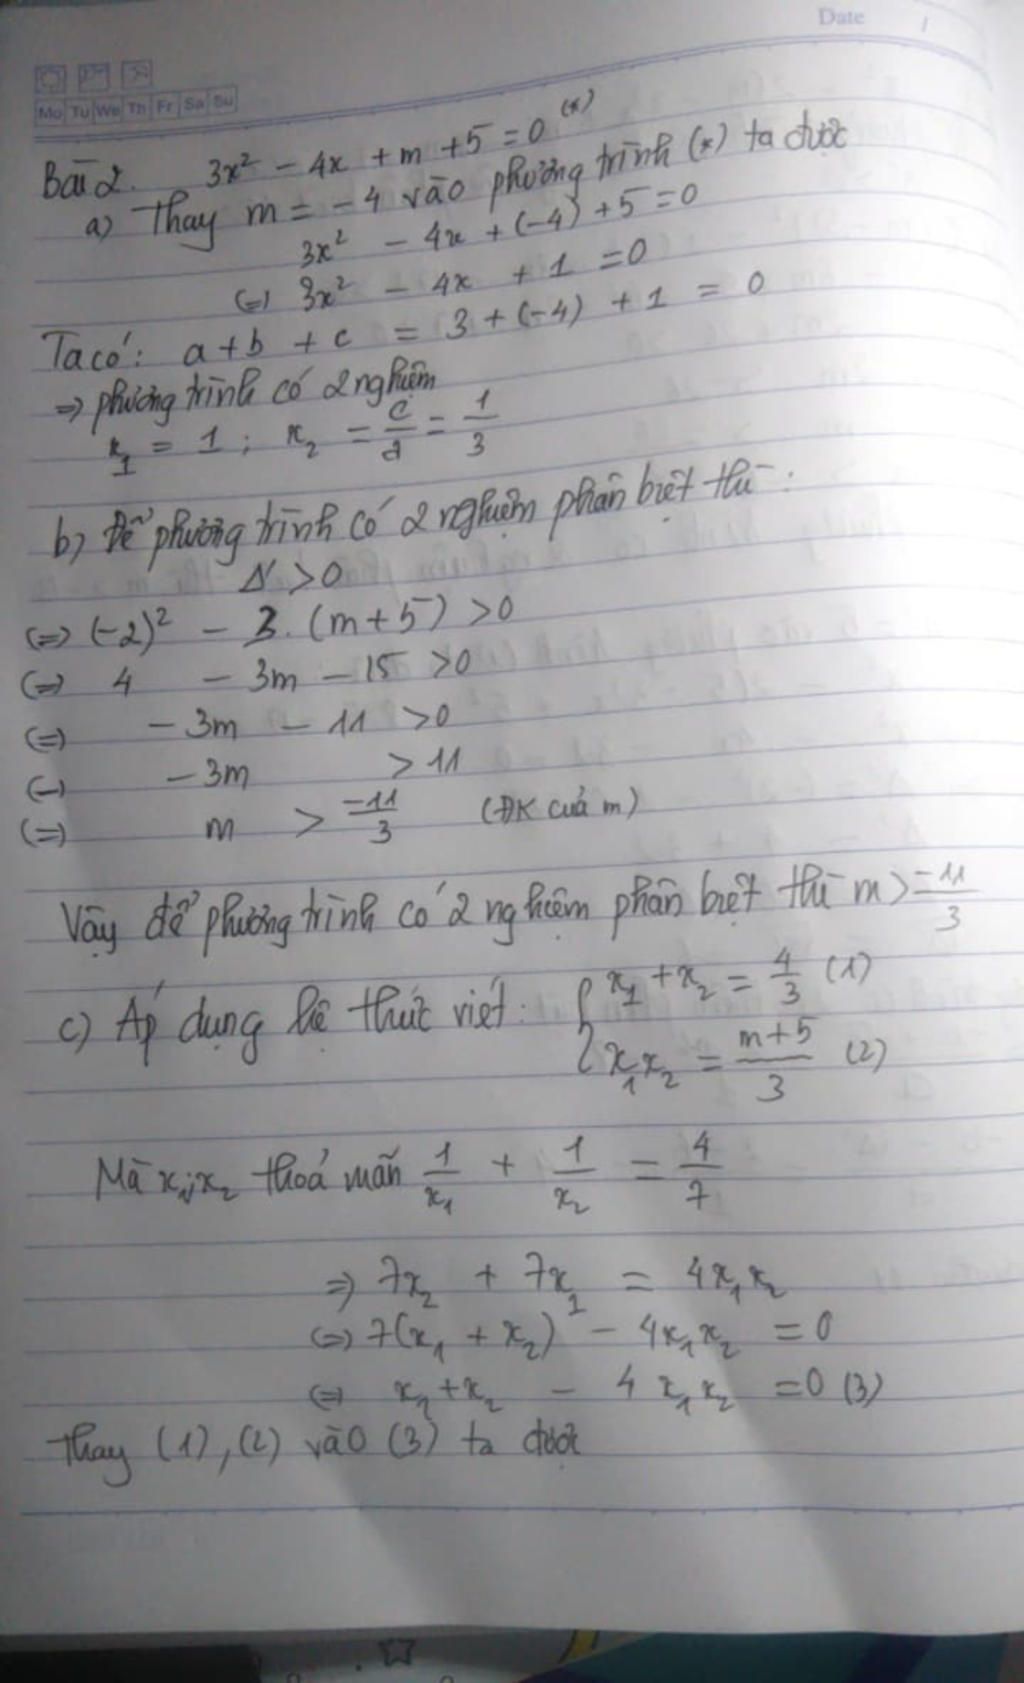 Date 1
Mo Tu We Th Fr Sa Su
Bài 2. 3x² - 4x + m + 5 = 0 (*)
a) Thay m = -4 vào phương trình (*) ta được
3x² - 4x + (-4) + 5 = 0
(=) 3x² - 4x + 1 = 0
Ta có: a + b + c = 3 + (-4) + 1 = 0
=> phương trình có 2 nghiệm
x₁ = 1 ; x₂ = c/a = 1/3
b) Để phương trình có 2 nghiệm phân biệt thì:
Δ' > 0
(=) (-2)² - 3. (m+5) > 0
(=) 4 - 3m - 15 > 0
(=) - 3m - 11 > 0
(=) - 3m > 11
(=) m > -11/3 (ĐK của m)
Vậy để phương trình có 2 nghiệm phân biệt thì m > -11/3
c) Áp dụng hệ thức viét: { x₁ + x₂ = 4/3 (1)
x₁x₂ = m+5/3 (2)
Mà x₁;x₂ thoả mãn 1/x₁ + 1/x₂ = 4/7
=> 7x₂ + 7x₁ = 4x₁x₂
(=) 7(x₁ + x₂) - 4x₁x₂ = 0
(=) x₁ + x₂ - 4x₁x₂ = 0 (3)
Thay (1), (2) vào (3) ta được